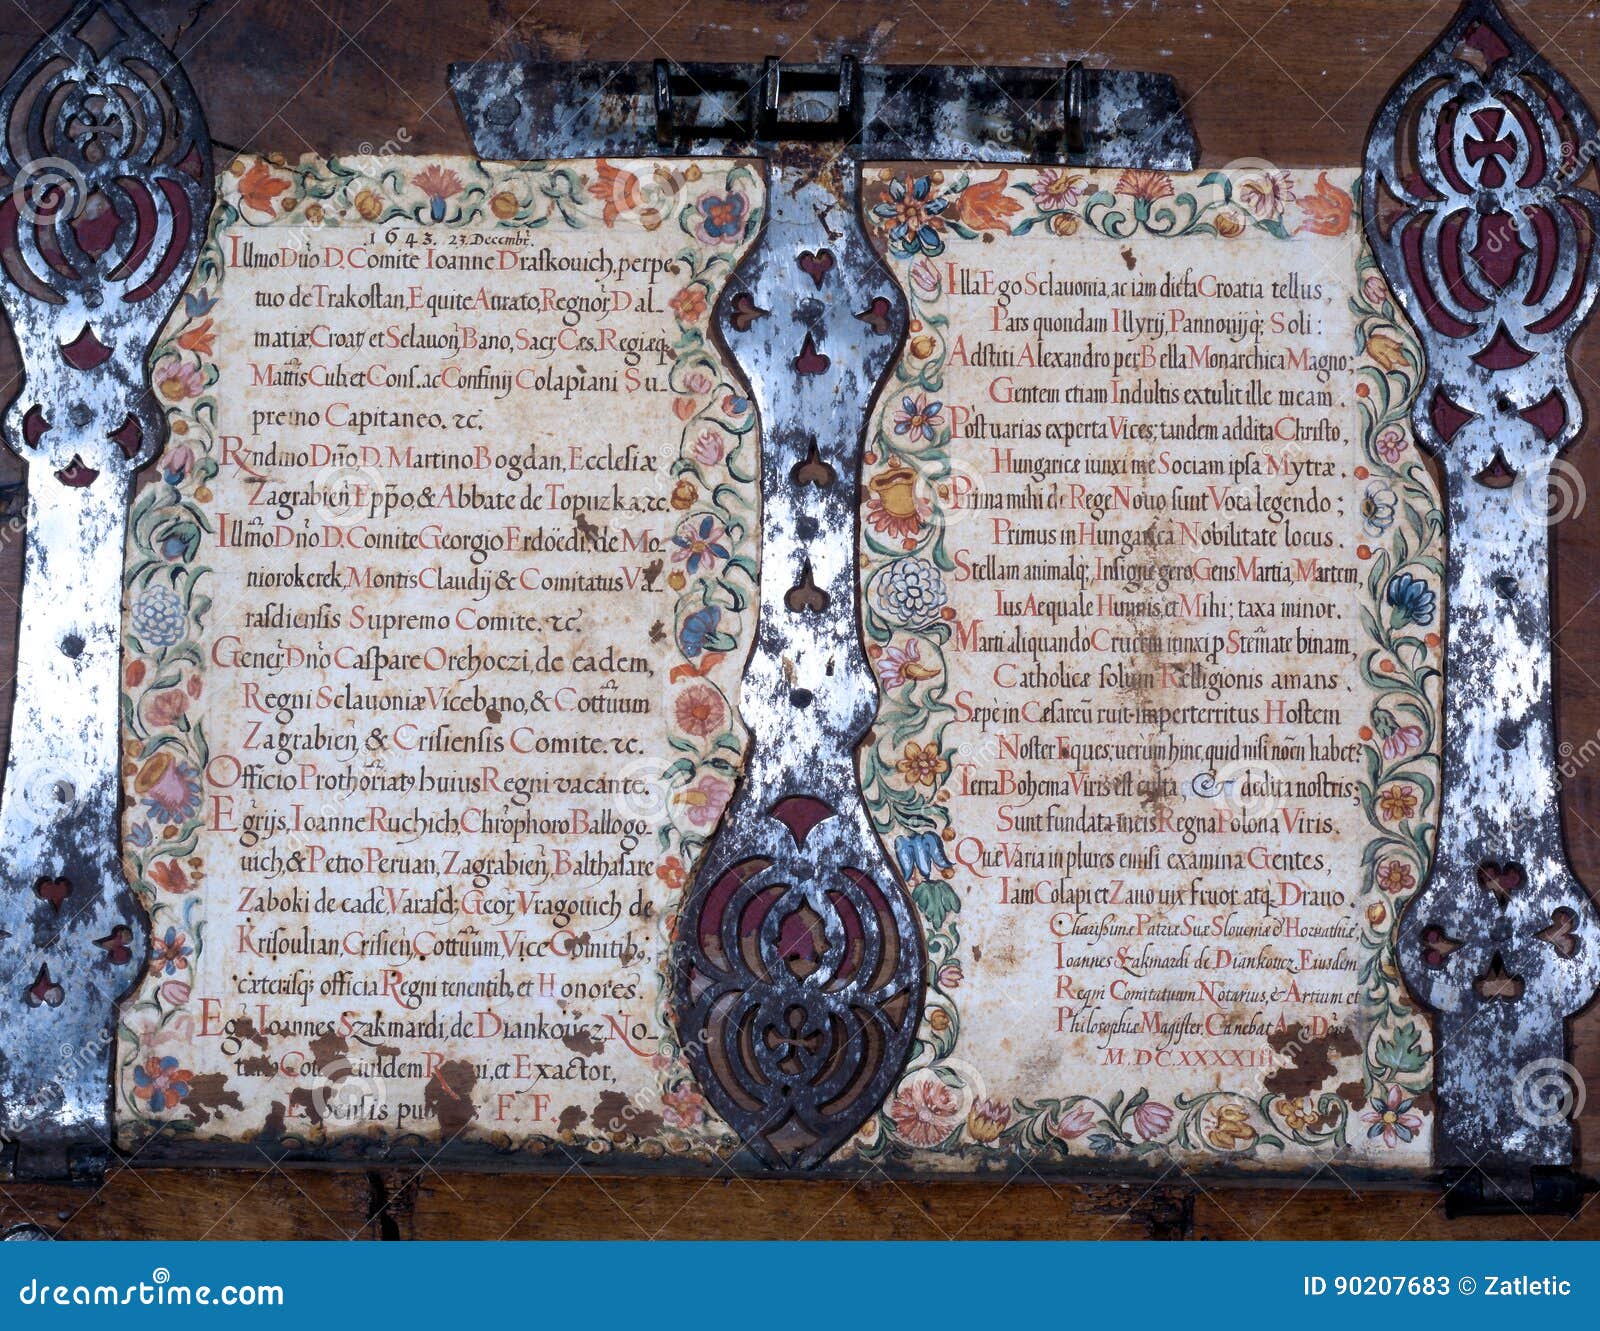 1643. 23. Decembr.
Illmo Dño D. Comite Ioanne Draskouich, perpe
tuo de Trakostan, Equite Aurato, Regnor̃ Dal-
matiæ Croat̃ et Selauoñ Bano, Sacr̃ Cæs. Regiæq;
Mattis Cub. et Cons. ac Confinij Colapiani Su-
premo Capitaneo. &c.
Rzndmo Dño D. Martino Bogdan, Ecclesiæ
Zagrabieñ Eppõ, & Abbate de Topuzka, &c.
Illmo Dño D. Comite Georgio Erdöedi, de Mo-
niorokerek, Montis Claudij & Comitatus Va-
rasdiensis Supremo Comite. &c.
Gener̃ Dño Caspare Orehoczi, de eadem,
Regni Sclauoniæ Vicebano, & Cottũum
Zagrabieñ & Crisiensis Comite. &c.
Officio Prothõriatꝰ huius Regni vacante.
Egrijs, Ioanne Ruchich, Chrõphoro Ballogo-
uich, & Petro Peruan, Zagrabieñ, Balthasare
Zaboki de eadẽ, Varasd; Geor, Vragouich de
Krisoulian, Crisieñ, Cottũum, Vice Comitibꝰ;
cæterisq; officia Regni tenentib, et Honores.
Egr Ioannes Szakmardi, de Diankouez, No-
et Exactor,
F. F.
Illa Ego Sclauonia, ac iàm dicta Croatia tellus,
Pars quondam Illyrij, Pannonijq; Soli:
Adstiti Alexandro per Bella Monarchica Magno;
Gentem etiam Indultis extulit ille meam.
Post uarias experta Vices; tandem addita Christo,
Hungaricæ iunxi me Sociam ipsa Mytræ.
Prima mihi de Rege Nouo sunt Vota legendo;
Primus in Hungarica Nobilitate locus.
Stellam animalq; Insigne gero, Gens Martia, Martem,
Ius Aequale Hunnis, et Mihi; taxa minor.
Marti aliquandò Crucem iunxi p Stem̃ate binam,
Catholicæ solum Relligionis amans.
Sæpè in Cæsareũ ruit imperterritus Hostem
Noster Eques; uerùm hinc, quid nisi nõen habet?
Terra Bohema Viris est culta, dedita nostris;
Sunt fundata meis Regna Polona Viris.
Quæ Varia in plures emisi examina Gentes,
Iàm Colapi et Zauo uix fruor atq; Drauo.
Charissimæ Patriæ Suæ Sloueniæ & Horuathiæ,
Ioannes Szakmardi de Diankouez, Eiusdem
Regni Comitatuum Notarius, & Artium et
Philosophiæ Magister, Canebat
M. DC. XXXXIII
dreamstime
ID 90207683 © Zatletic